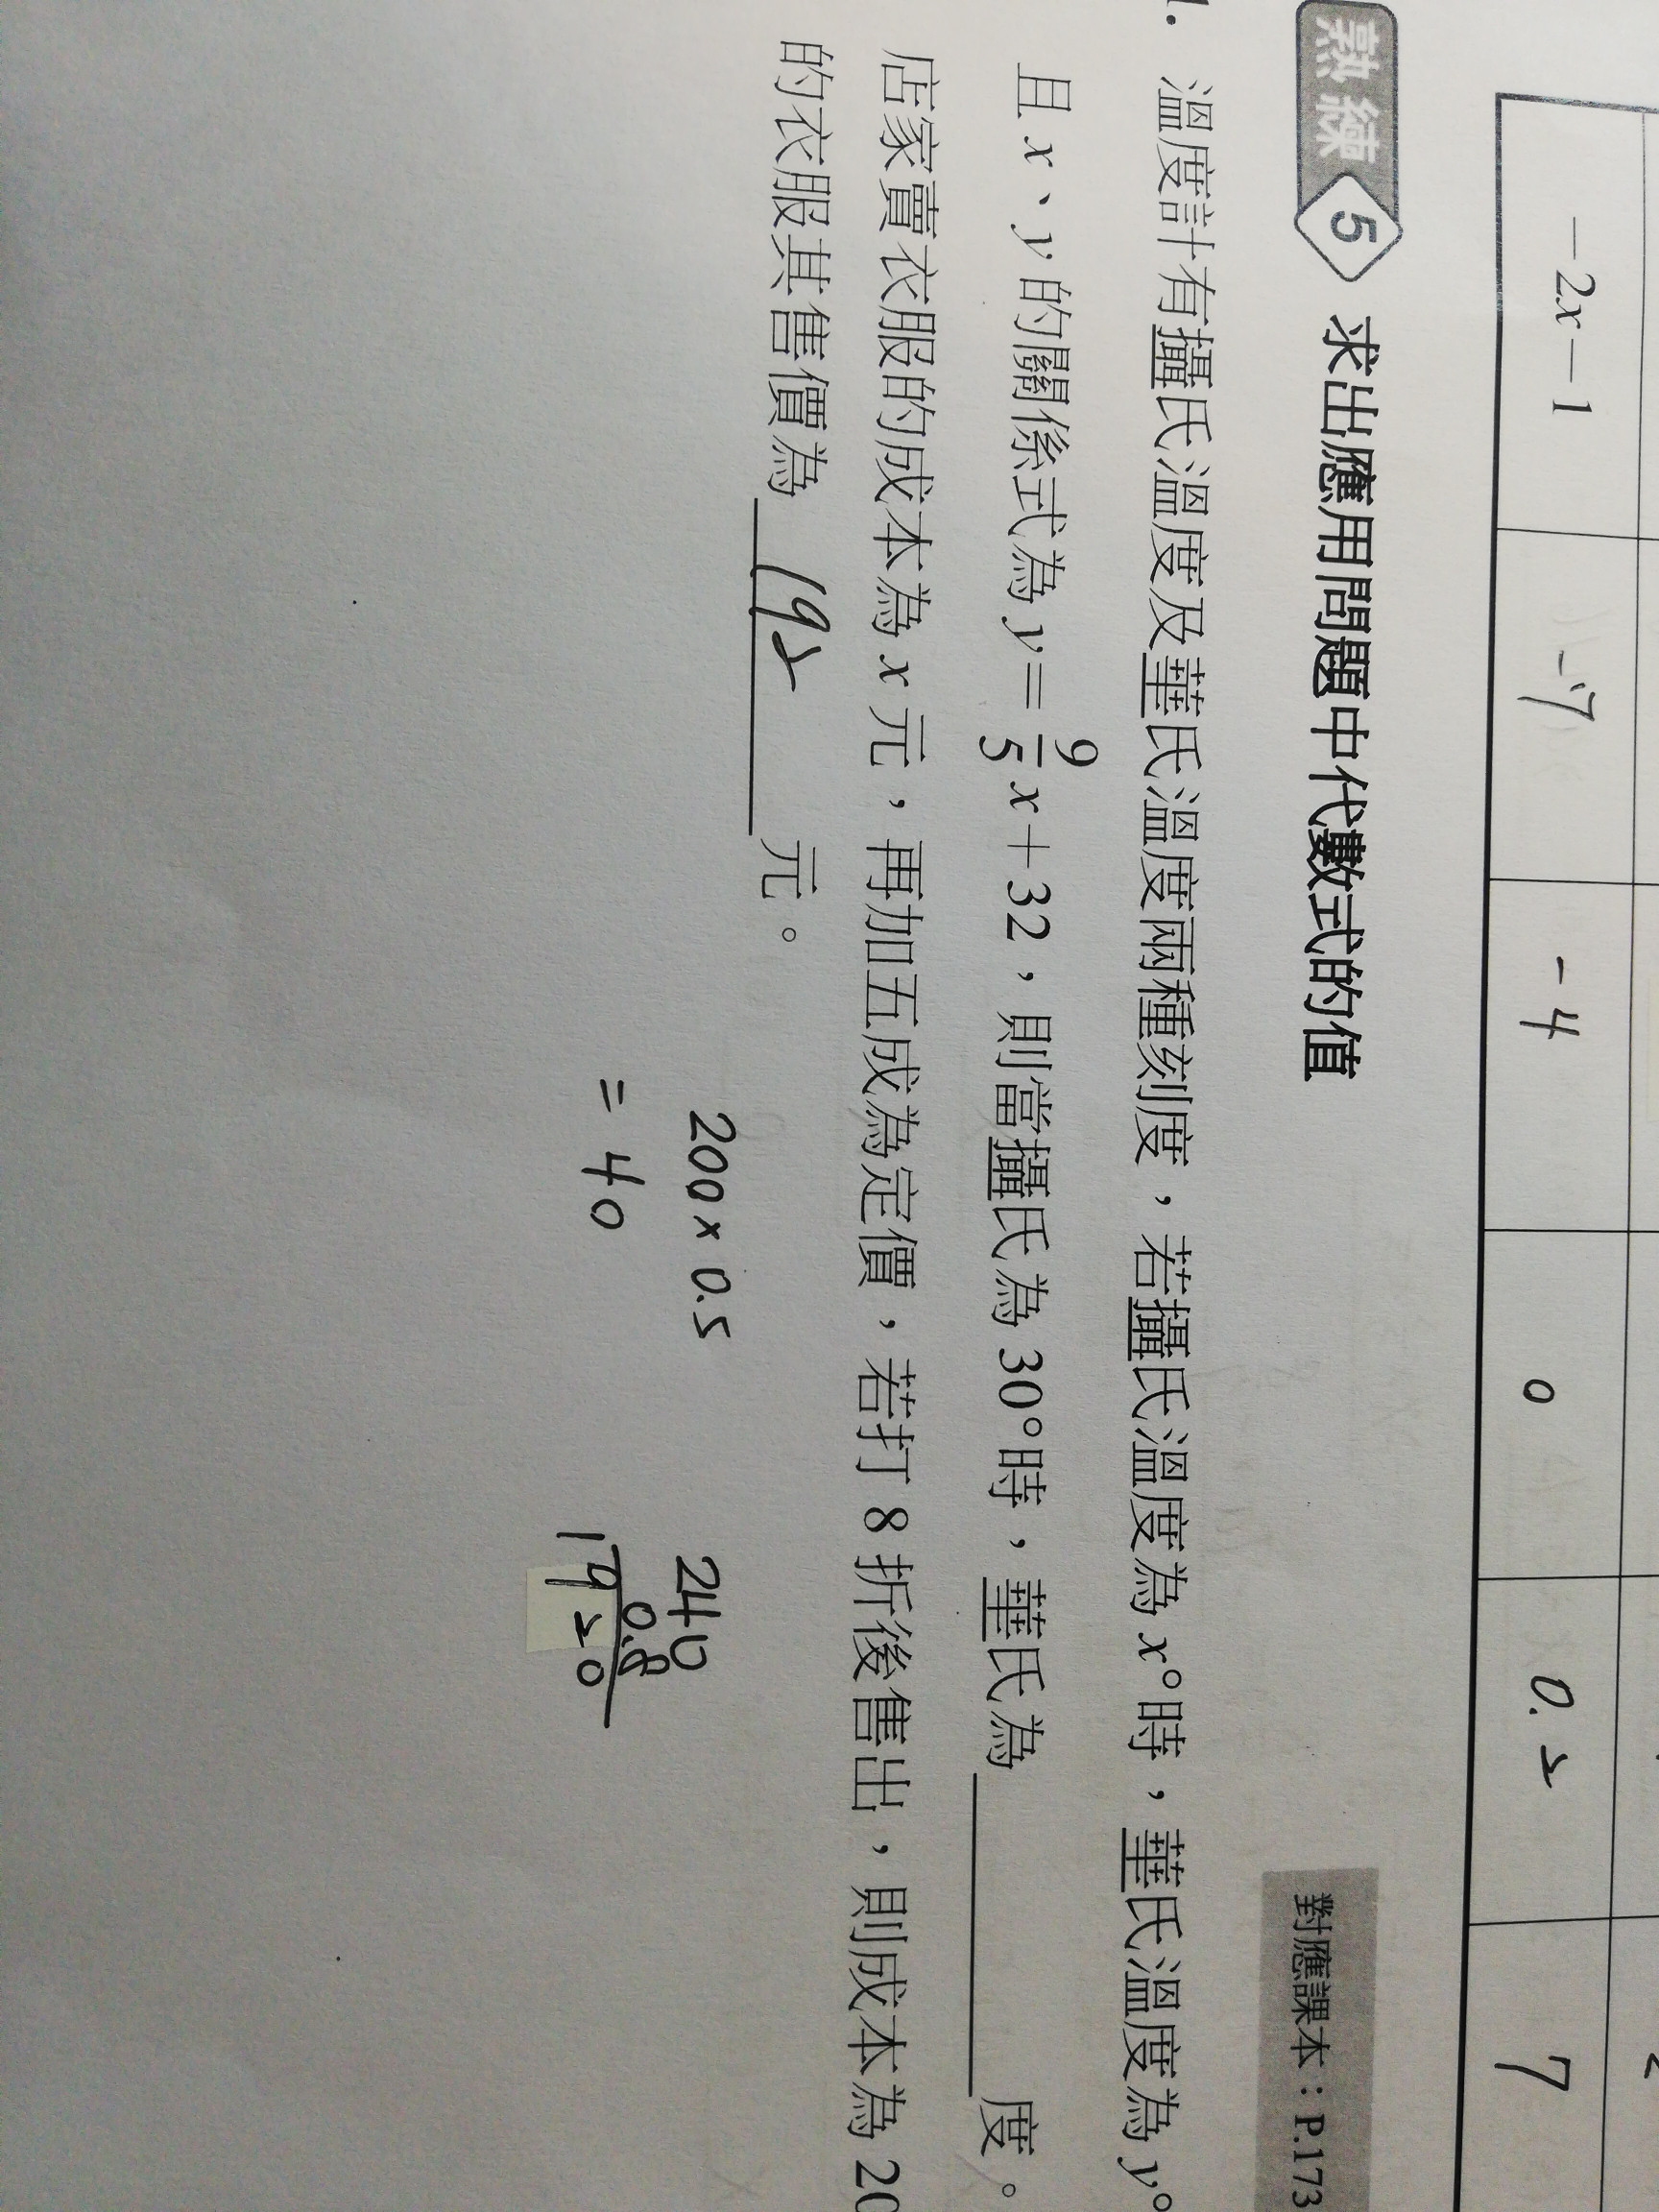 -2x-1 -7 -4 0 0.2 7
熟練 5 求出應用問題中代數式的值 對應課本：P.173
1. 溫度計有攝氏溫度及華氏溫度兩種刻度，若攝氏溫度為 x°時，華氏溫度為 y°
且 x、y 的關係式為 y=9/5x+32，則當攝氏為 30°時，華氏為________度。
店家賣衣服的成本為 x 元，再加五成為定價，若打 8 折後售出，則成本為 20
的衣服其售價為 192 元。
200×0.5
=40
240
0.8
1920